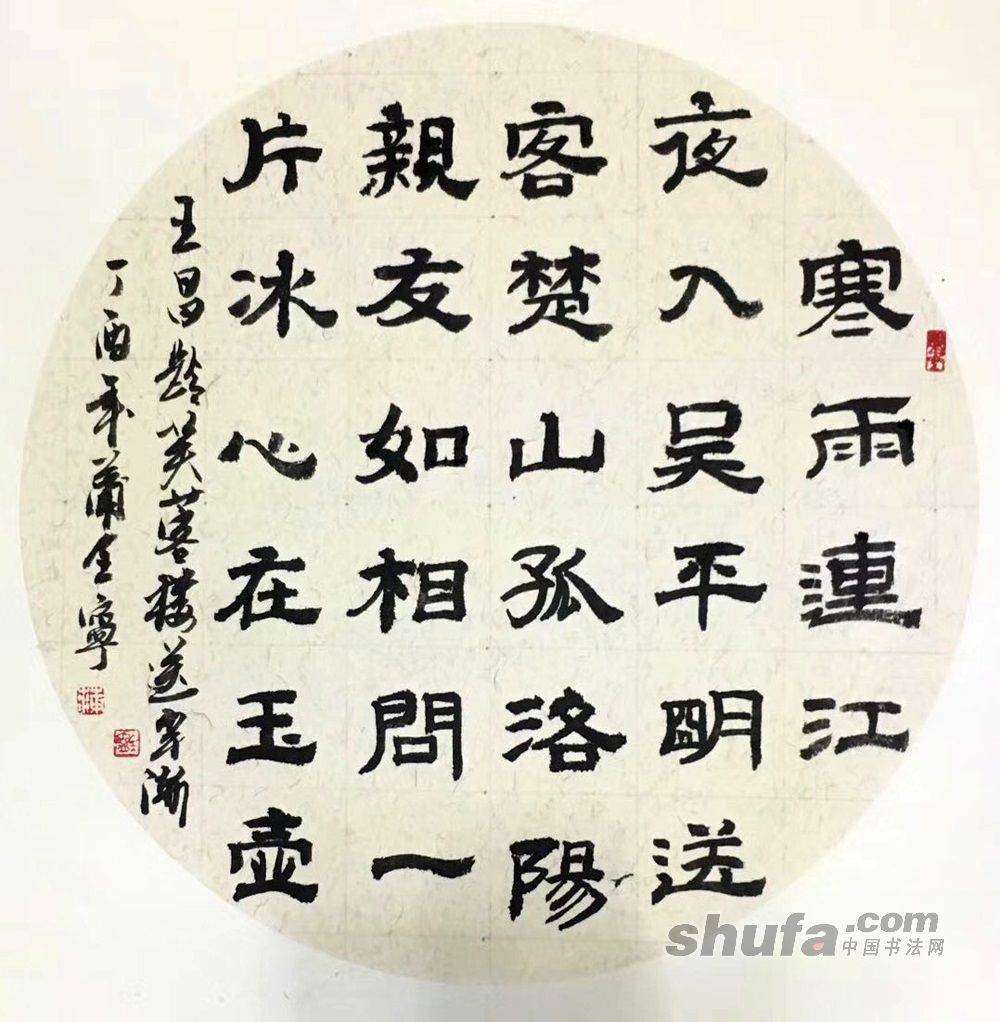 寒雨連江
夜入吳平明送
客楚山孤洛陽
親友如相問一
片冰心在玉壺
王昌齡芙蓉樓送辛漸
丁酉年蒲金寧
shufa.com
中国书法网